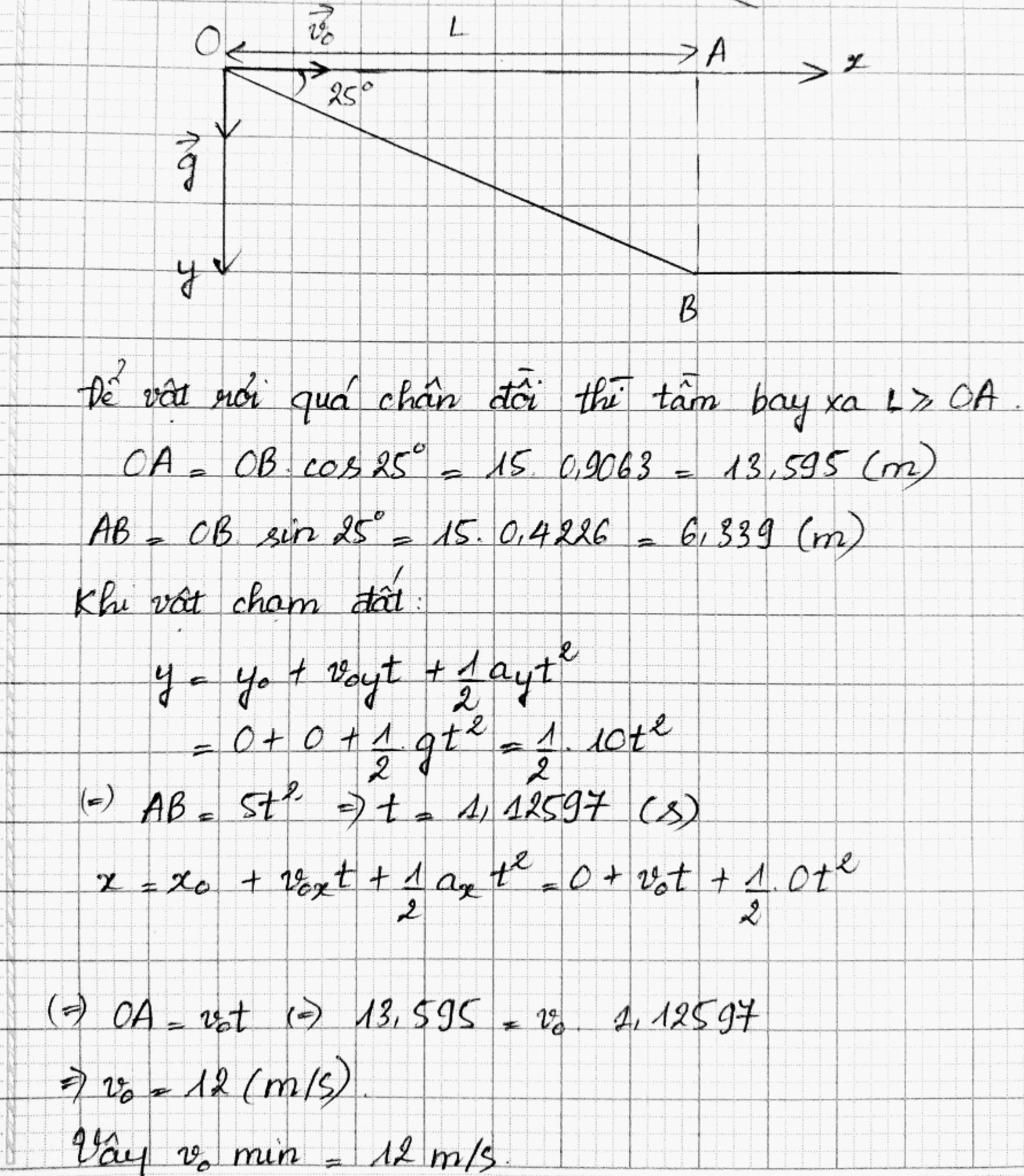 O v₀ L A x
25°
g
y
B
Để vật rơi quá chân đồi thì tầm bay xa L ≥ OA.
OA = OB. cos 25° = 15. 0,9063 = 13,595 (m)
AB = OB sin 25° = 15. 0,4226 = 6,339 (m)
Khi vật chạm đất:
y = y₀ + v₀yt + 1/2 ayt²
= 0 + 0 + 1/2. gt² = 1/2. 10t²
(=) AB = 5t² => t = 1,12597 (s)
x = x₀ + v₀xt + 1/2 ax t² = 0 + v₀t + 1/2. 0t²
(=) OA = v₀t (=) 13,595 = v₀. 1,12597
=> v₀ = 12 (m/s).
Vậy v₀ min = 12 m/s.